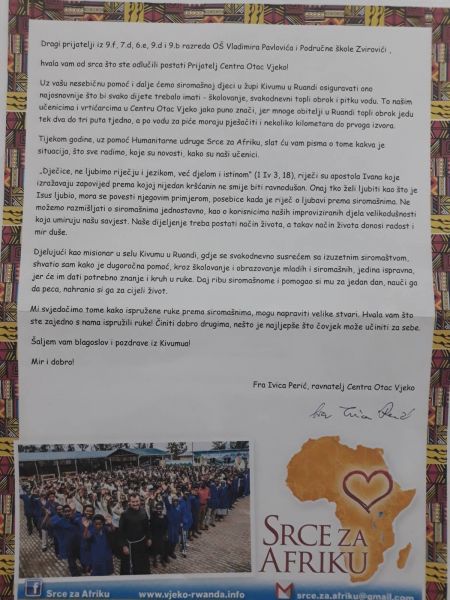 Dragi prijatelji iz 9.f, 7.d, 6.e, 9.d i 9.b razreda OŠ Vladimira Pavlovića i Područne škole Zvirovići ,
hvala vam od srca što ste odlučili postati Prijatelj Centra Otac Vjeko!
Uz vašu nesebičnu pomoć i dalje ćemo siromašnoj djeci u župi Kivumu u Ruandi osiguravati ono
najosnovnije što bi svako dijete trebalo imati - školovanje, svakodnevni topli obrok i pitku vodu. To našim
učenicima i vrtićarcima u Centru Otac Vjeko jako puno znači, jer mnoge obitelji u Ruandi topli obrok jedu
tek dva do tri puta tjedno, a po vodu za piće moraju pješačiti i nekoliko kilometara do prvoga izvora.
Tijekom godine, uz pomoć Humanitarne udruge Srce za Afriku, slat ću vam pisma o tome kakva je
situacija, što sve radimo, koje su novosti, kako su naši učenici.
„Dječice, ne ljubimo riječju i jezikom, već djelom i istinom" (1 Iv 3, 18), riječi su apostola Ivana koje
izražavaju zapovijed prema kojoj nijedan kršćanin ne smije biti ravnodušan. Onaj tko želi ljubiti kao što je
Isus ljubio, mora se povesti njegovim primjerom, posebice kada je riječ o ljubavi prema siromašnima. Ne
možemo razmišljati o siromašnima jednostavno, kao o korisnicima naših improviziranih djela velikodušnosti
koja umiruju našu savjest. Naše dijeljenje treba postati način života, a takav način života donosi radost i
mir duše.
Djelujući kao misionar u selu Kivumu u Ruandi, gdje se svakodnevno susrećem sa izuzetnim siromaštvom,
shvatio sam kako je dugoročna pomoć, kroz školovanje i obrazovanje mladih i siromašnih, jedina ispravna,
jer će im dati potrebno znanje i kruh u ruke. Daj ribu siromašnome i pomogao si mu za jedan dan, nauči ga
da peca, nahranio si ga za cijeli život.
Mi svjedočimo tome kako ispružene ruke prema siromašnima, mogu napraviti velike stvari. Hvala vam što
ste zajedno s nama ispružili ruke! Činiti dobro drugima, nešto je najljepše što čovjek može učiniti za sebe.
Šaljem vam blagoslov i pozdrave iz Kivumua!
Mir i dobro!
Fra Ivica Perić, ravnatelj Centra Otac Vjeko
fra Ivica Perić
SRCE ZA
AFRIKU
Srce za Afriku
www.vjeko-rwanda.info
srce.za.afriku@gmail.com